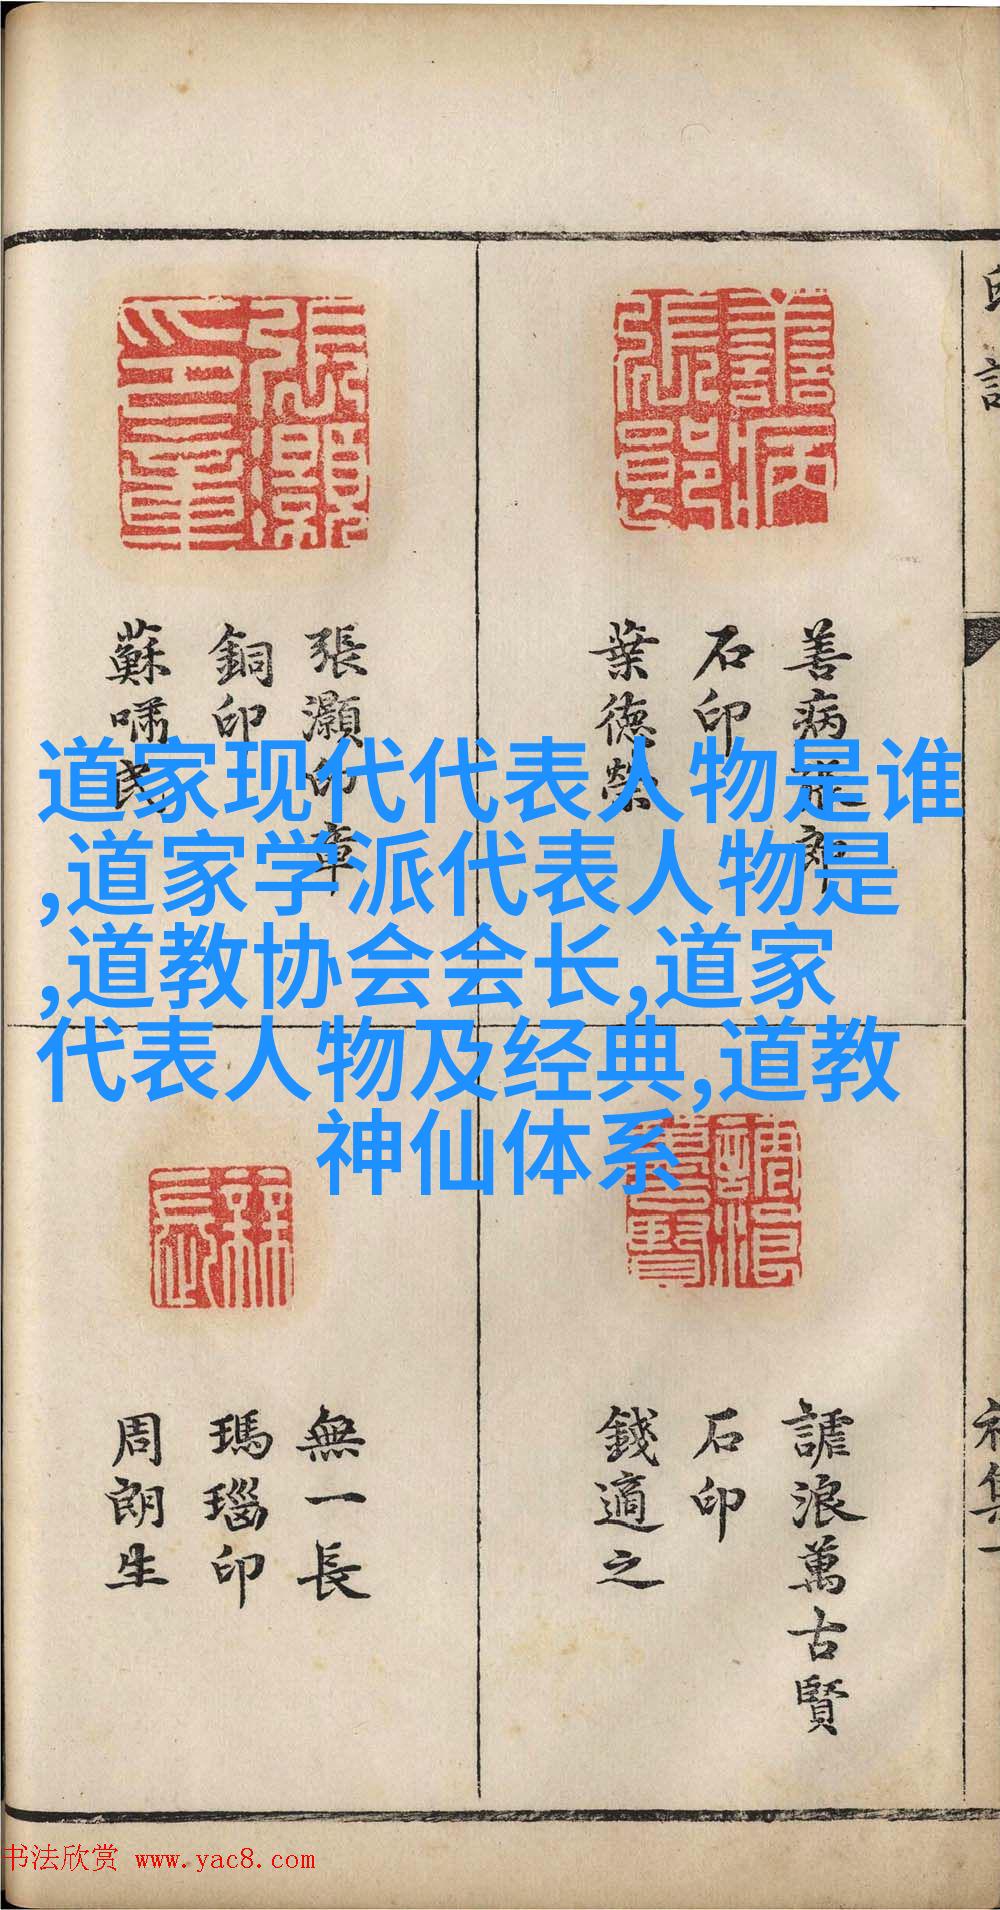 道家现代代表人物是谁
,道家学派代表人物是
,道教协会会长,道家
代表人物及经典,道教
神仙体系
善病張郎
石印
葉德榮
張灝印章
銅印
蘇嘯民
謔浪萬古賢
石印
錢適之
無一長
瑪瑙印
周朗生
张灝印章
初集一
书法欣赏 www.yac8.com